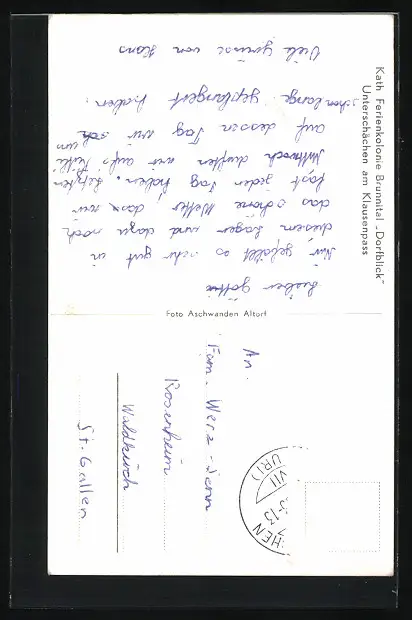 Kath Ferienkolonie Brunnital „Dorfblick"
Unterschächen am Klausenpass
Lieber Götti
Mir gefällt es sehr gut in
diesem Lager und dazu noch
das schöne Wetter dass wir
fast jeden Tag haben. Letzten
Mittwoch durften wir aufs
auf dessen Tag wir uns
schon lange geplangert haben.
Viele grüsse von Hans
Foto Aschwanden Altorf
An.
Fam. Werz-Senn
Rosenheim
Waldkirch
St. Gallen
CHEN
-13
VII
(URI)